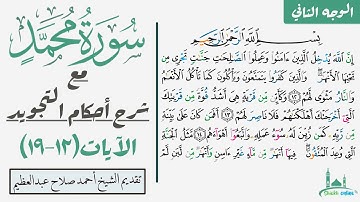 الوجه الثاني
بِسْمِ ٱللَّهِ ٱلرَّحْمَٰنِ ٱلرَّحِيمِ
إِنَّ ٱللَّهَ يُدْخِلُ ٱلَّذِينَ ءَامَنُوا۟ وَعَمِلُوا۟ ٱلصَّٰلِحَٰتِ جَنَّٰتٍ تَجْرِى مِن
تَحْتِهَا ٱلْأَنْهَٰرُ وَٱلَّذِينَ كَفَرُوا۟ يَتَمَتَّعُونَ وَيَأْكُلُونَ كَمَا تَأْكُلُ ٱلْأَنْعَٰمُ
وَٱلنَّارُ مَثْوًى لَّهُمْ ١٢ وَكَأَيِّن مِّن قَرْيَةٍ هِىَ أَشَدُّ قُوَّةً مِّن قَرْيَتِكَ
ٱلَّتِىٓ أَخْرَجَتْكَ أَهْلَكْنَٰهُمْ فَلَا نَاصِرَ لَهُمْ ١٣ أَفَمَن كَانَ عَلَىٰ بَيِّنَةٍ
مِّن رَّبِّهِۦ كَمَن زُيِّنَ لَهُۥ سُوٓءُ عَمَلِهِۦ وَٱتَّبَعُوٓا۟ أَهْوَآءَهُم ١٤ مَّثَلُ ٱلْجَنَّةِ
ٱلَّتِى وُعِدَ ٱلْمُتَّقُونَ فِيهَآ أَنْهَٰرٌ مِّن مَّآءٍ غَيْرِ ءَاسِنٍ وَأَنْهَٰرٌ مِّن لَّبَنٍ لَّمْ
سُورَةُ مُحَمَّدٍ
مع
شرح أحكام التجويد
الآيات (١٢-١٩)
تقديم الشيخ أحمد صلاح عبدالعظيم